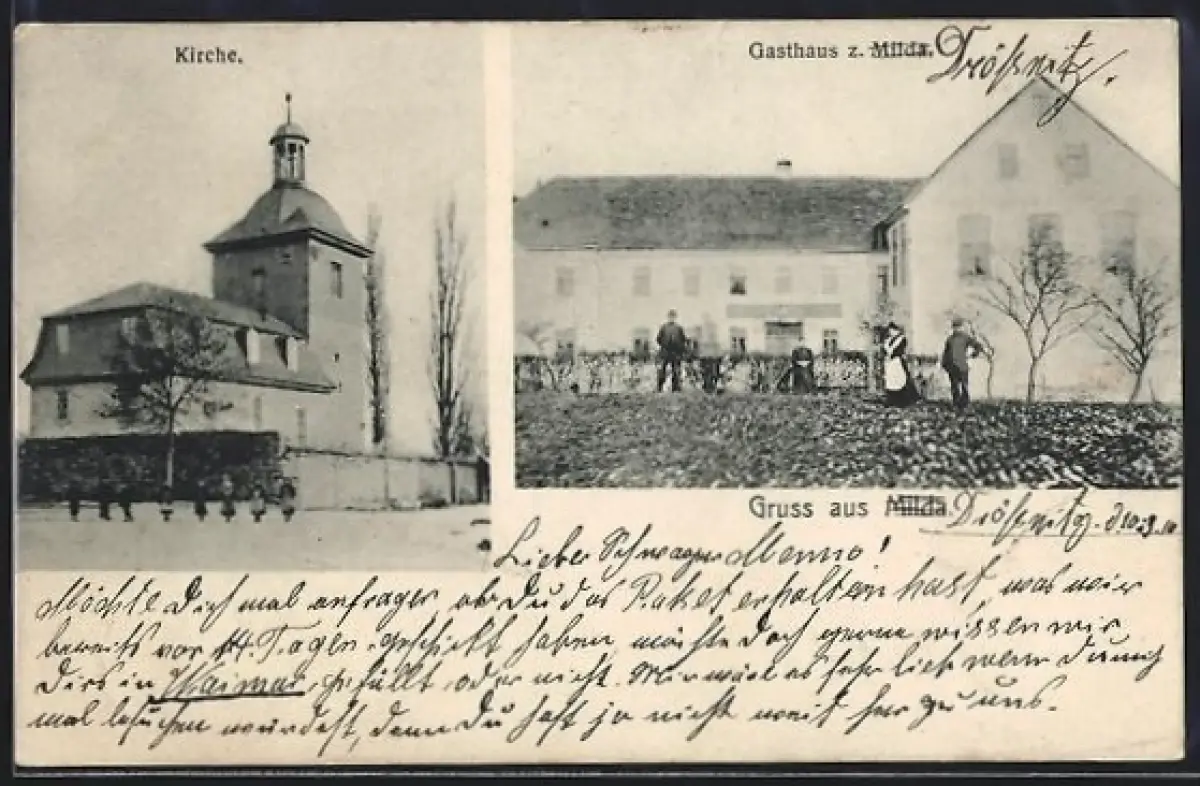 Kirche.
Gasthaus z. Milda. Drößnitz.
Gruss aus Milda. Drößnitz, d. 10.3.10
Lieber Schwager Menno!
Möchte Dich mal anfragen, ob Du das Paket erhalten hast, was wir
bereits vor 14. Tagen geschickt haben, möchte doch gerne wissen wie
Dirs in Weimar gefällt, oder nicht. Mir wäre es sehr lieb wenn Du uns
mal besuchen würdest, denn Du hast ja nicht weit her zu uns.